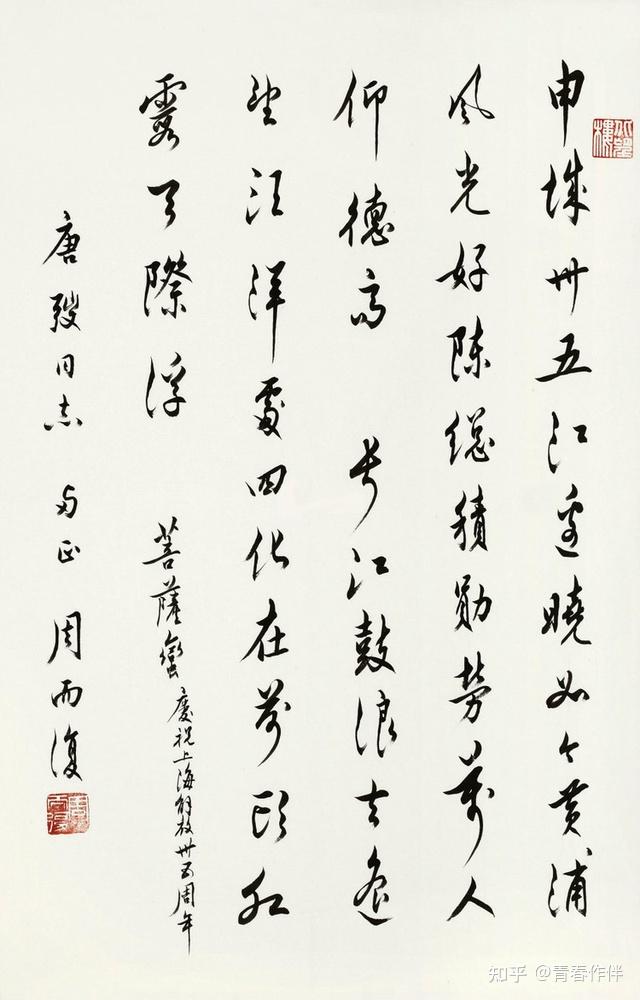 申城卅五江邊曉如今黃浦
風光好陳總積勛勞萬人
仰德高 長江鼓浪去遙
望汪洋處四化在前頭紅
霞天際浮 菩薩蠻 慶祝上海解放卅五周年
唐弢同志 正 周而復
知乎 @青春作伴